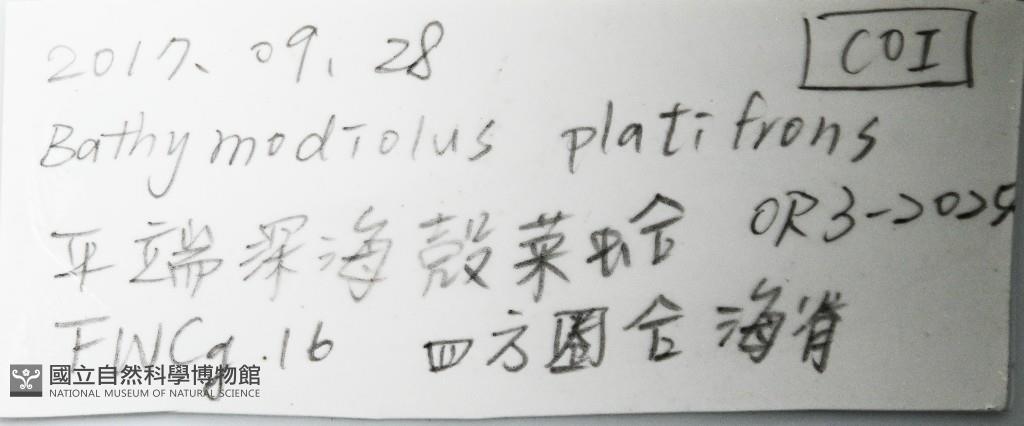 2017、09、28
COI
Bathymodiolus platifrons
平端深海殼菜蛤 OR3-2025
FWCg.16 四方圈合海脊
國立自然科學博物館
NATIONAL MUSEUM OF NATURAL SCIENCE